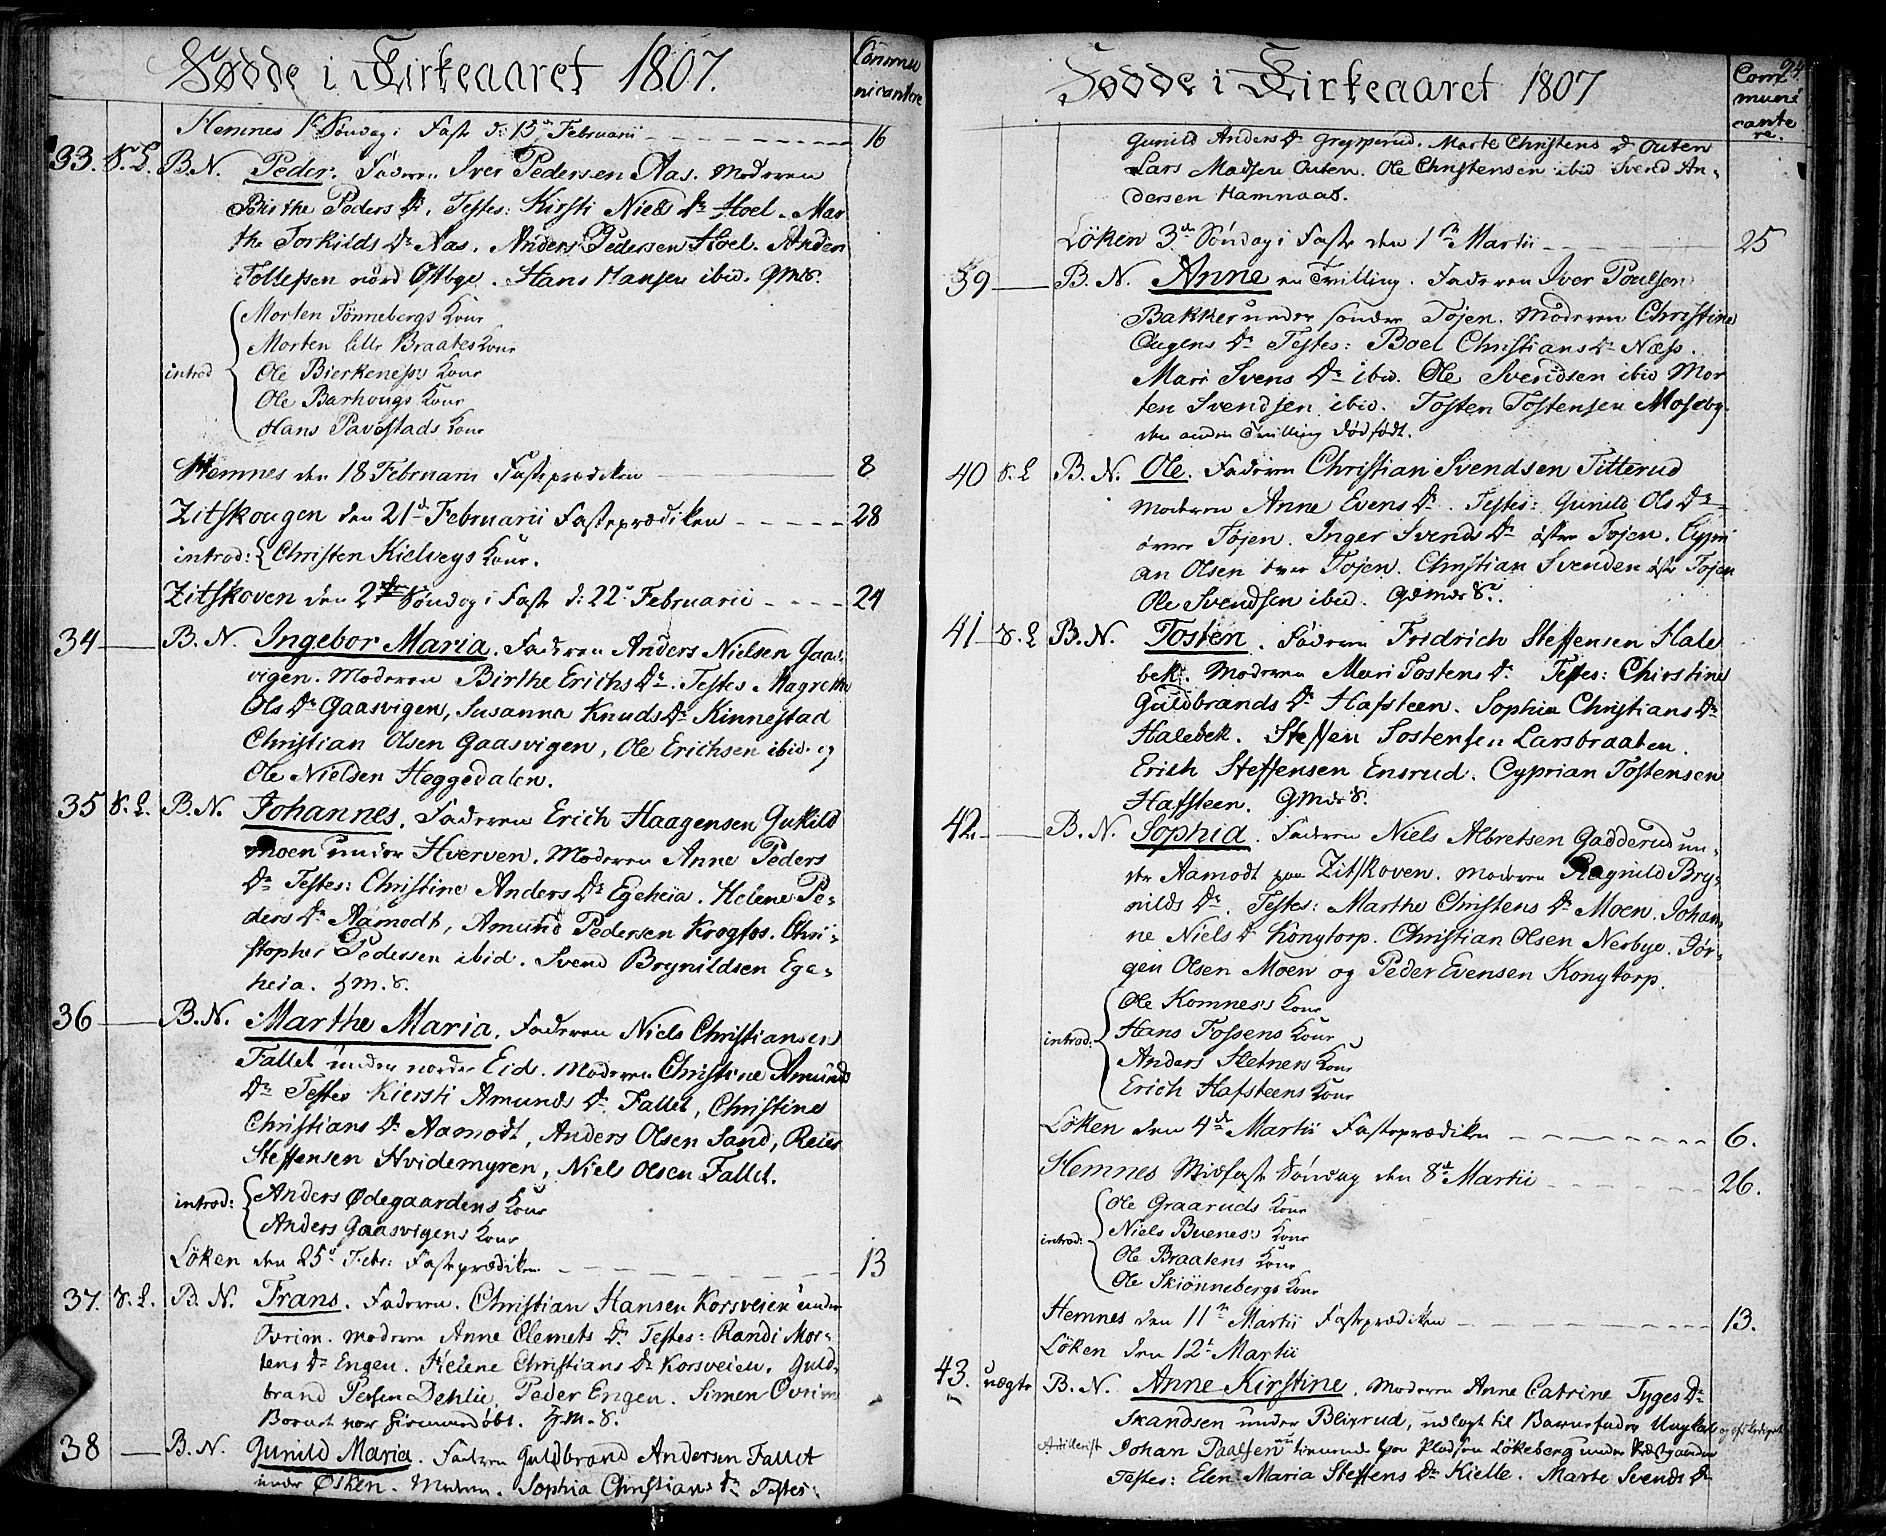 Fødde i Kirkeaaret 1807.
Commu
nicantere
Hemnes 1te Søndag i Faste d: 15de Februarii 16
33. S. L. B. N. Peder. Faderen Iver Pedersen Aas. Moderen
Birthe Peders Dr. Testes: Kirsti Niels Dr Hoel. Mar
the Torkilds Dr Aas. Anders Pedersen Hoel. Anders
Tollefsen nord Østbye. Hans Hansen ibid. GM.S.
Morten Tønnebergs Kone
Morten lille Braates Kone
introd Ole Bierkeness's Kone
Ole Barhougs Kone
Hans Pavestads Kone
Hemnes den 18 Februarii Fasteprædiken 8
Zitskougen den 21d Februarii Fasteprædiken 28
introd: Christen Kielveys Kone.
Zitskoven den 2den Søndag i Faste d: 22. Februarii 24
34 B. N. Ingebor Maria. Faderen Anders Nielsen Gaas-
vigen. Moderen Birthe Erichs Dr. Testes Magrethe
Ols Dr Gaasvigen, Susanna Knuds Dr Kinnestad
Christian Olsen Gaasvigen, Ole Erichsen ibid. og
Ole Nielsen Heggedalen.
35 S. L. B. N. Johannes. Faderen Erich Haagensen Gukild
moen under Hverven. Moderen Anne Peders
Dr Testes: Christine Anders Dr Egeheia. Helene Pe-
ders Dr Aamodt, Amund Pedersen Krogfos. Chri-
stopher Pedersen ibid. Svend Brynildsen Ege-
heia. GM.S.
36 B. N. Marthe Maria. Faderen Niels Christiansen
Fallet under nordre Eid. Moderen Christine Amunds
Dr Testes Kiersti Amunds Dr Fallet, Christine
Christians Dr Aamodt, Anders Olsen Sand, Reier
Steffensen Hvidemyren, Niels Olsen Fallet.
introd: Anders Ødegaardens Kone
Anders Gaasvigens Kone
Löken den 25d Febr: Fasteprædiken 13
37. S. L. B. N. Frans. Faderen. Christian Hansen Korsveien under
Ovrim. Moderen Anne Clemets Dr Testes: Randi Mor-
tens Dr Engen. Helene Christians Dr Korsveien. Guld-
brand Jensen Dehlie, Peder Engen. Simen Ovrim
Barnet var hiemmedøbt. GM.S.
38 B. N. Gunild Maria. Faderen Guldbrand Andersen Fallet
under Østen. Moderen. Sophia Christians Dr Testes:
Fødde i Kirkeaaret 1807
94.
Com
muni
cante
re.
Gunild Anders Dr Grepperud. Marte Christens Dr Outen
Lars Madsen Outen. Ole Christensen ibid Svend An-
dersen Hamnaas.
Löken 3de Søndag i Faste den 1te Martii 25
39 B. N. Anne en Tvilling. Faderen Iver Poulsen
Bakker under søndre Tojen. Moderen Christine
Ougens Dr Testes: Boel Christians Dr Næss.
Mari Svens Dr ibid. Ole Svendsen ibid Mor
ten Svendsen ibid. Tosten Tostensen Moseby.
den anden Tvilling dødfødt.
40 S. L B. N. Ole. Faderen Christian Svendsen Titterud
Moderen Anne Evens Dr. Testes: Gunild Ols Dr
øvre Tojen. Inger Svends Dr østre Tojen. Cypri
an Olsen øvre Tojen. Christian Svendsen østr Tojen
Ole Svendsen ibid. GMds S.
41 S. L B. N. Tosten. Faderen Fridrich Steffensen Hale
bek. Moderen Mari Tostens Dr Testes: Christine
Guldbrands Dr Hafsteen. Sophia Christians Dr
Halebek. Steffen Tostensen Larsbraaten.
Erich Steffensen Ensrud. Cyprian Tostensen
Hafsteen. GMds S.
42. B. N. Sophia. Faderen Niels Albretsen Gadderud un-
der Aamodt paa Zitskoven. Moderen Ragnild Bry-
nilds Dr. Testes: Marthe Christens Dr Moen. Johan
ne Niels Dr Kongtorp. Christian Olsen Nerbye. Jör-
gen Olsen Moen og Peder Evensen Kongtorp.
Ole Komness's Kone
Hans Fossens Kone
introd: Anders Sletners Kone
Erich Hafsteens Kone
Löken den 4de Martii Fasteprædiken 6.
Hemnes Midfaste Søndag den 8de Martii 26.
Ole Graaruds Kone
Niels Buenes's Kone
introd: Ole Braatens Kone
Ole Skiönnebergs Kone
Hemnes den 11te Martii Fasteprædiken 13.
Löken den 12te Martii
43. uægte B. N. Anne Kirstine. Moderen Anne Catrine Tyges Dr
Skandsen under Blixrud, udlagt til Barnefader Ungkarl
Artillerist Johan Paalsen tienende hos Pladsen Lökeberg under Præstgaarden
Testes: Elen Maria Steffens Dr Kielle. Marte Svends Dr